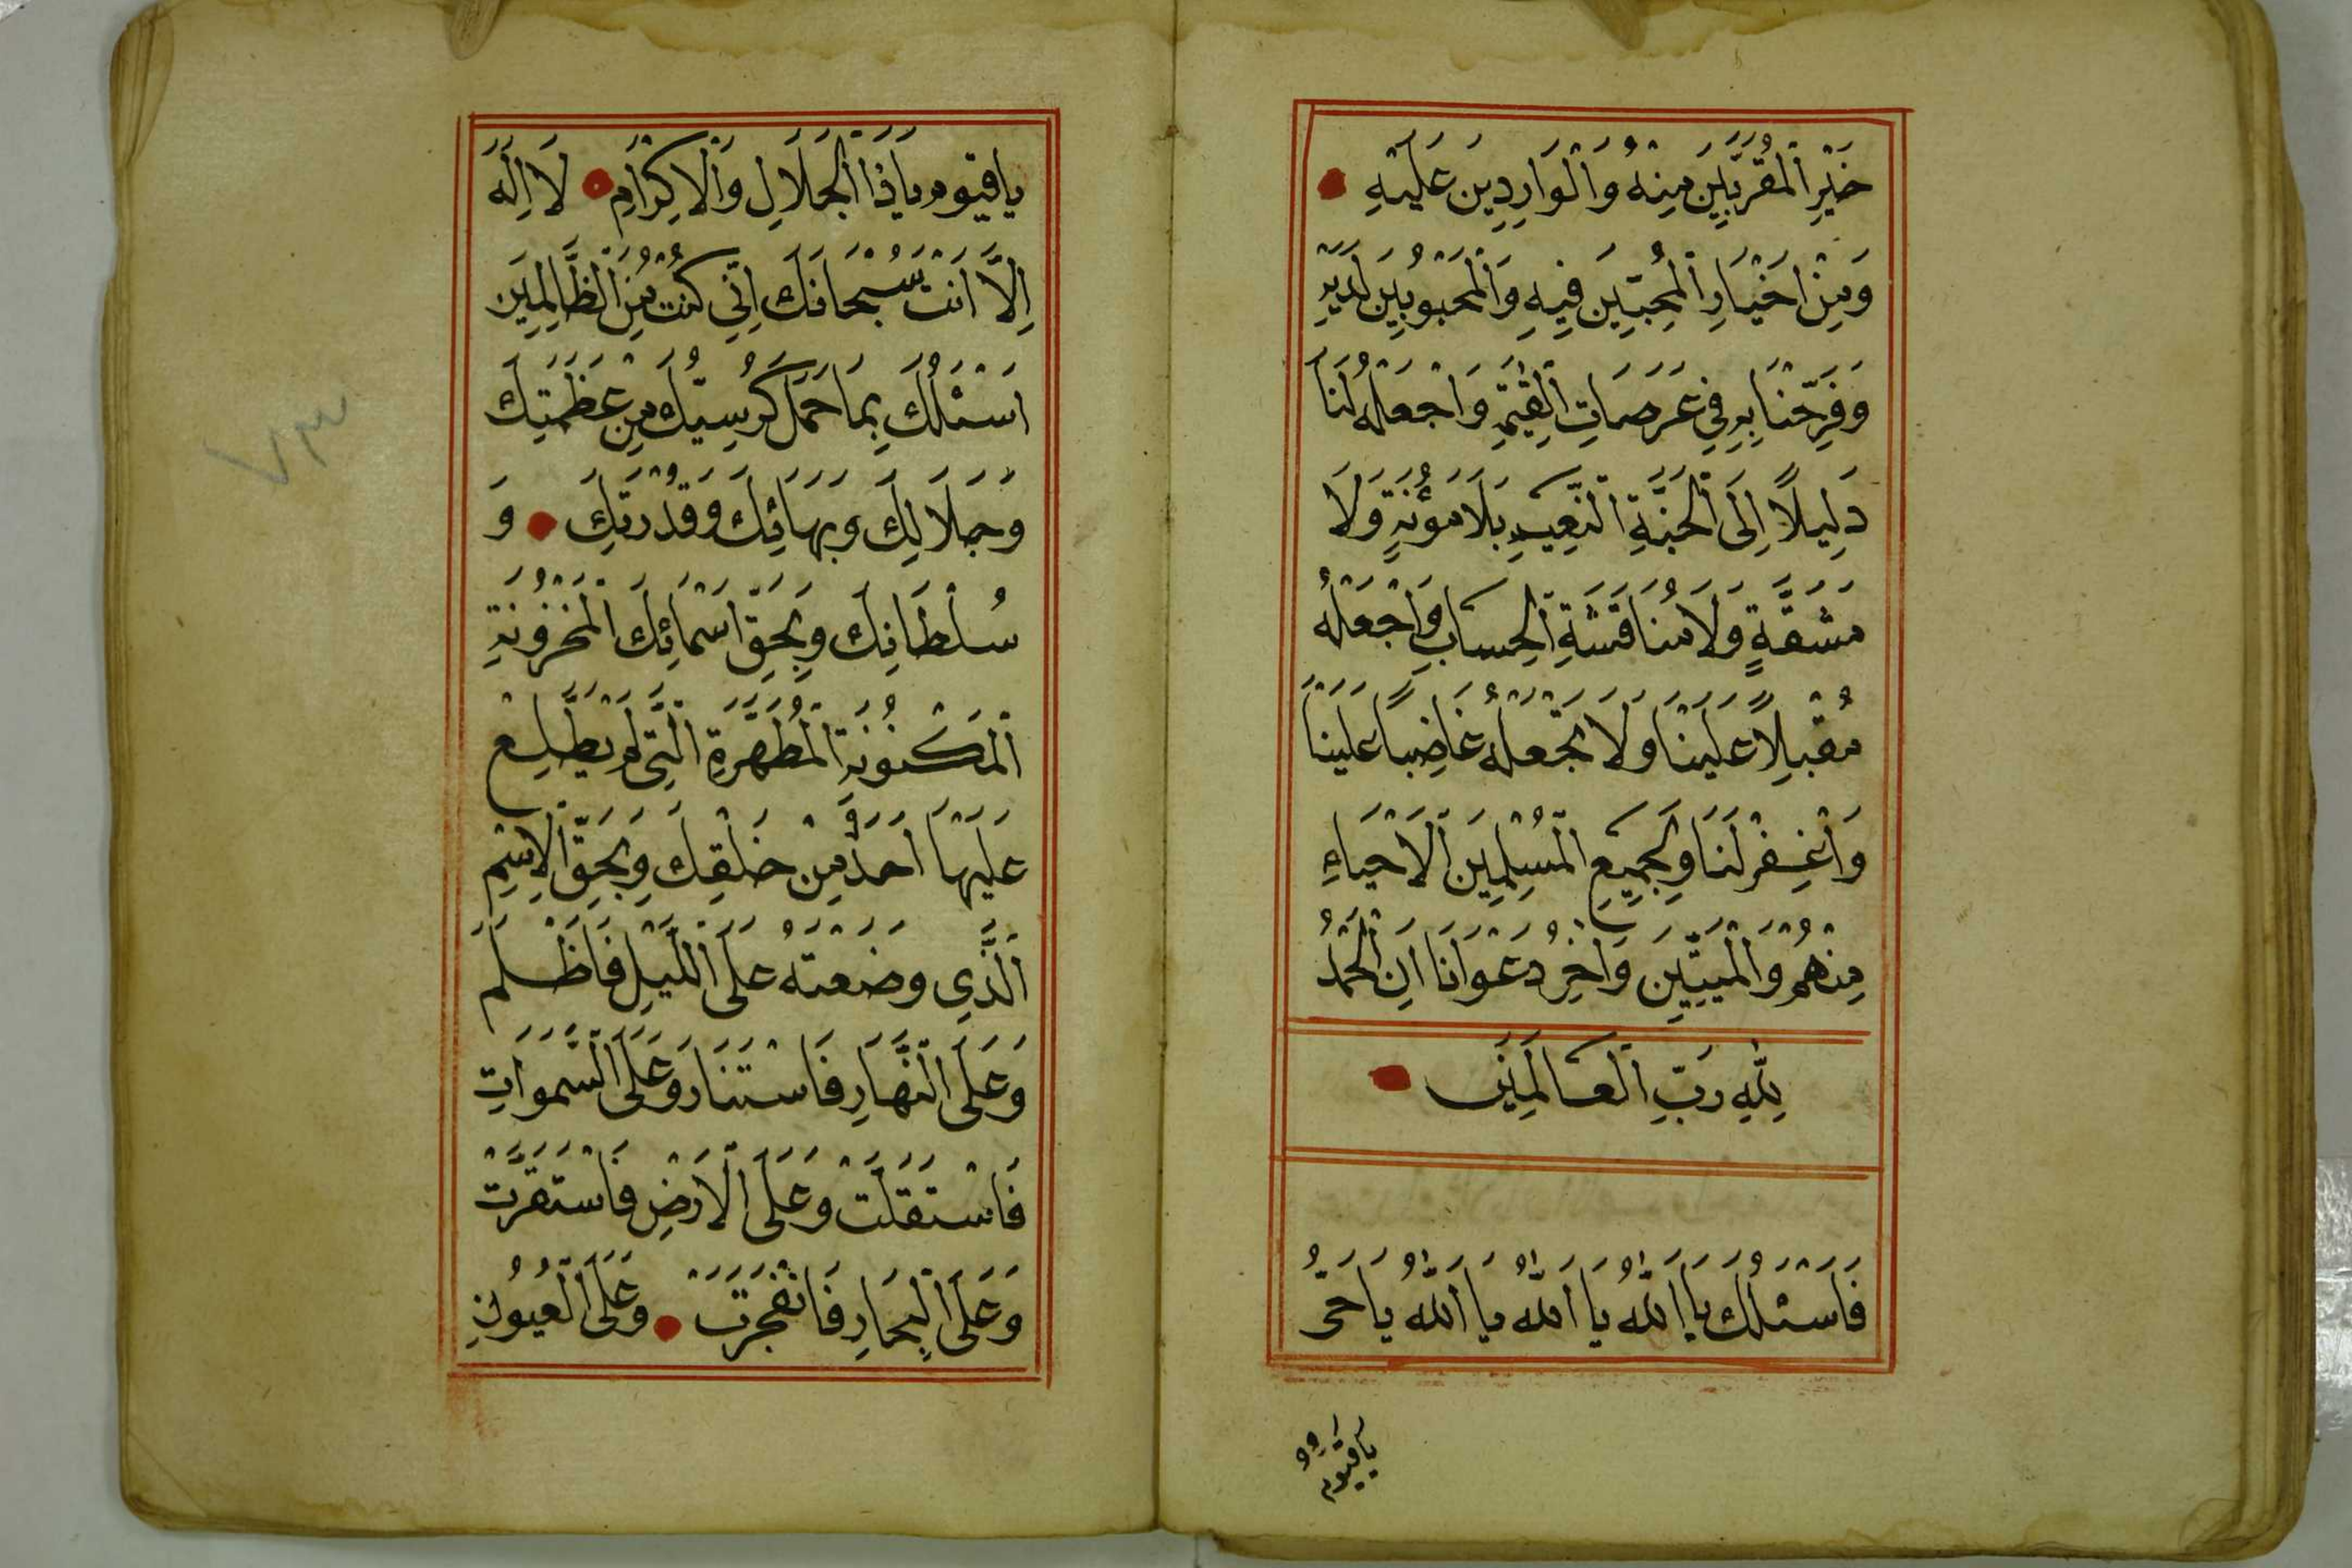 خَيْرِ الْمُقَرَّبِينَ مِنْهُ وَالْوَارِدِينَ عَلَيْهِ
وَمِنْ اَخْيَارِ الْمُحِبِّينَ فِيهِ وَالْمَحْبُوبِينَ لَدَيْهِ
وَفَرِّحْنَا بِهِ فِي عَرَصَاتِ الْقِيٰمَةِ وَاجْعَلْهُ لَنَا
دَلِيلًا اِلَى الْجَنَّةِ النَّعِيمِ بِلَا مَؤُنَةٍ وَلَا
مَشَقَّةٍ وَلَا مُنَاقَشَةِ الْحِسَابِ وَاجْعَلْهُ
مُقْبِلًا عَلَيْنَا وَلَا تَجْعَلْهُ غَاضِبًا عَلَيْنَا
وَاغْفِرْ لَنَا وَلِجَمِيعِ الْمُسْلِمِينَ الْاَحْيَاءِ
مِنْهُمْ وَالْمَيِّتِينَ وَاٰخِرُ دَعْوَانَا اَنِ الْحَمْدُ
لِلّٰهِ رَبِّ الْعَالَمِينَ
فَاَسْئَلُكَ يَا اَللّٰهُ يَا اَللّٰهُ يَا اَللّٰهُ يَا حَيُّ
يَا قَيُّومُ
يَا قَيُّومُ يَا ذَا الْجَلَالِ وَالْاِكْرَامِ لَا اِلٰهَ
اِلَّا اَنْتَ سُبْحَانَكَ اِنِّي كُنْتُ مِنَ الظَّالِمِينَ
اَسْئَلُكَ بِمَا حَمَلَ كُرْسِيُّكَ مِنْ عَظَمَتِكَ
وَجَلَالِكَ وَبَهَائِكَ وَقُدْرَتِكَ وَ
سُلْطَانِكَ وَبِحَقِّ اَسْمَائِكَ الْمَخْزُونَةِ
الْمَكْنُونَةِ الْمُطَهَّرَةِ الَّتِي لَمْ يَطَّلِعْ
عَلَيْهَا اَحَدٌ مِنْ خَلْقِكَ وَبِحَقِّ الْاِسْمِ
الَّذِي وَضَعْتَهُ عَلَى اللَّيْلِ فَاَظْلَمَ
وَعَلَى النَّهَارِ فَاسْتَنَارَ وَعَلَى السَّمٰوَاتِ
فَاسْتَقَلَّتْ وَعَلَى الْاَرْضِ فَاسْتَقَرَّتْ
وَعَلَى الْبِحَارِ فَانْفَجَرَتْ وَعَلَى الْعُيُونِ